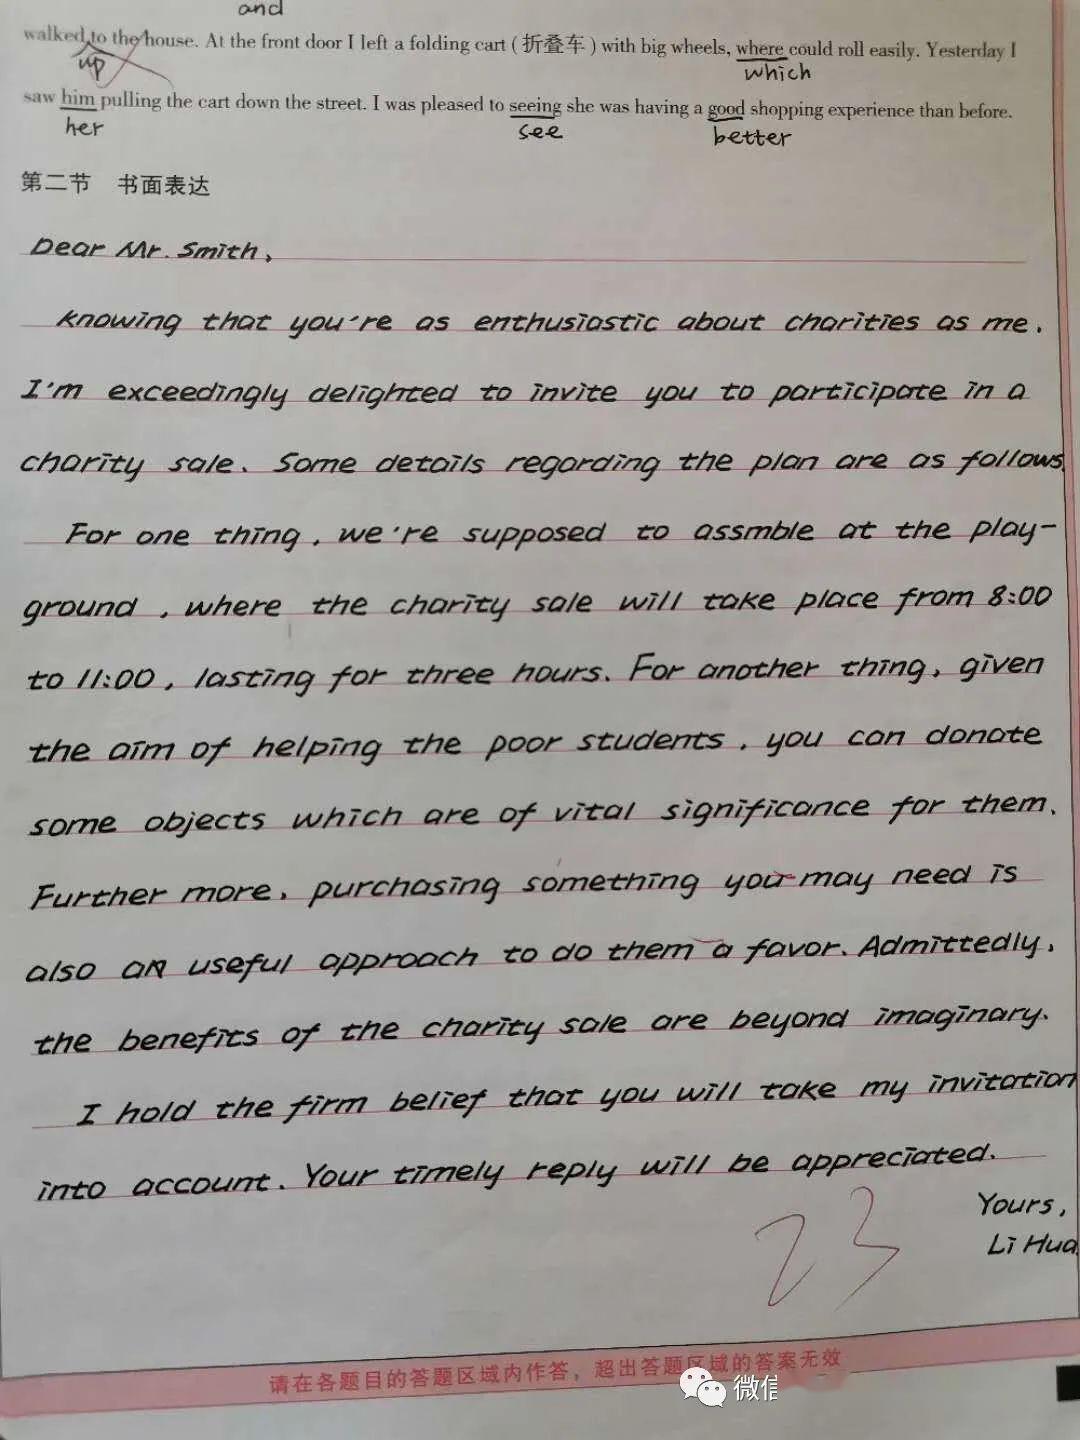 and
walked to the house. At the front door I left a folding cart (折叠车) with big wheels, where could roll easily. Yesterday I
up which
saw him pulling the cart down the street. I was pleased to seeing she was having a good shopping experience than before.
her see better
第二节 书面表达
Dear Mr. Smith,
Knowing that you're as enthusiastic about charities as me.
I'm exceedingly delighted to invite you to participate in a
charity sale. Some details regarding the plan are as follows.
For one thing, we're supposed to assmble at the play-
ground, where the charity sale will take place from 8:00
to 11:00, lasting for three hours. For another thing, given
the aim of helping the poor students, you can donate
some objects which are of vital significance for them.
Further more, purchasing something you may need is
also an useful approach to do them a favor. Admittedly,
the benefits of the charity sale are beyond imaginary.
I hold the firm belief that you will take my invitation
into account. Your timely reply will be appreciated.
Yours,
Li Hua
23
请在各题目的答题区域内作答，超出答题区域的答案无效
微信